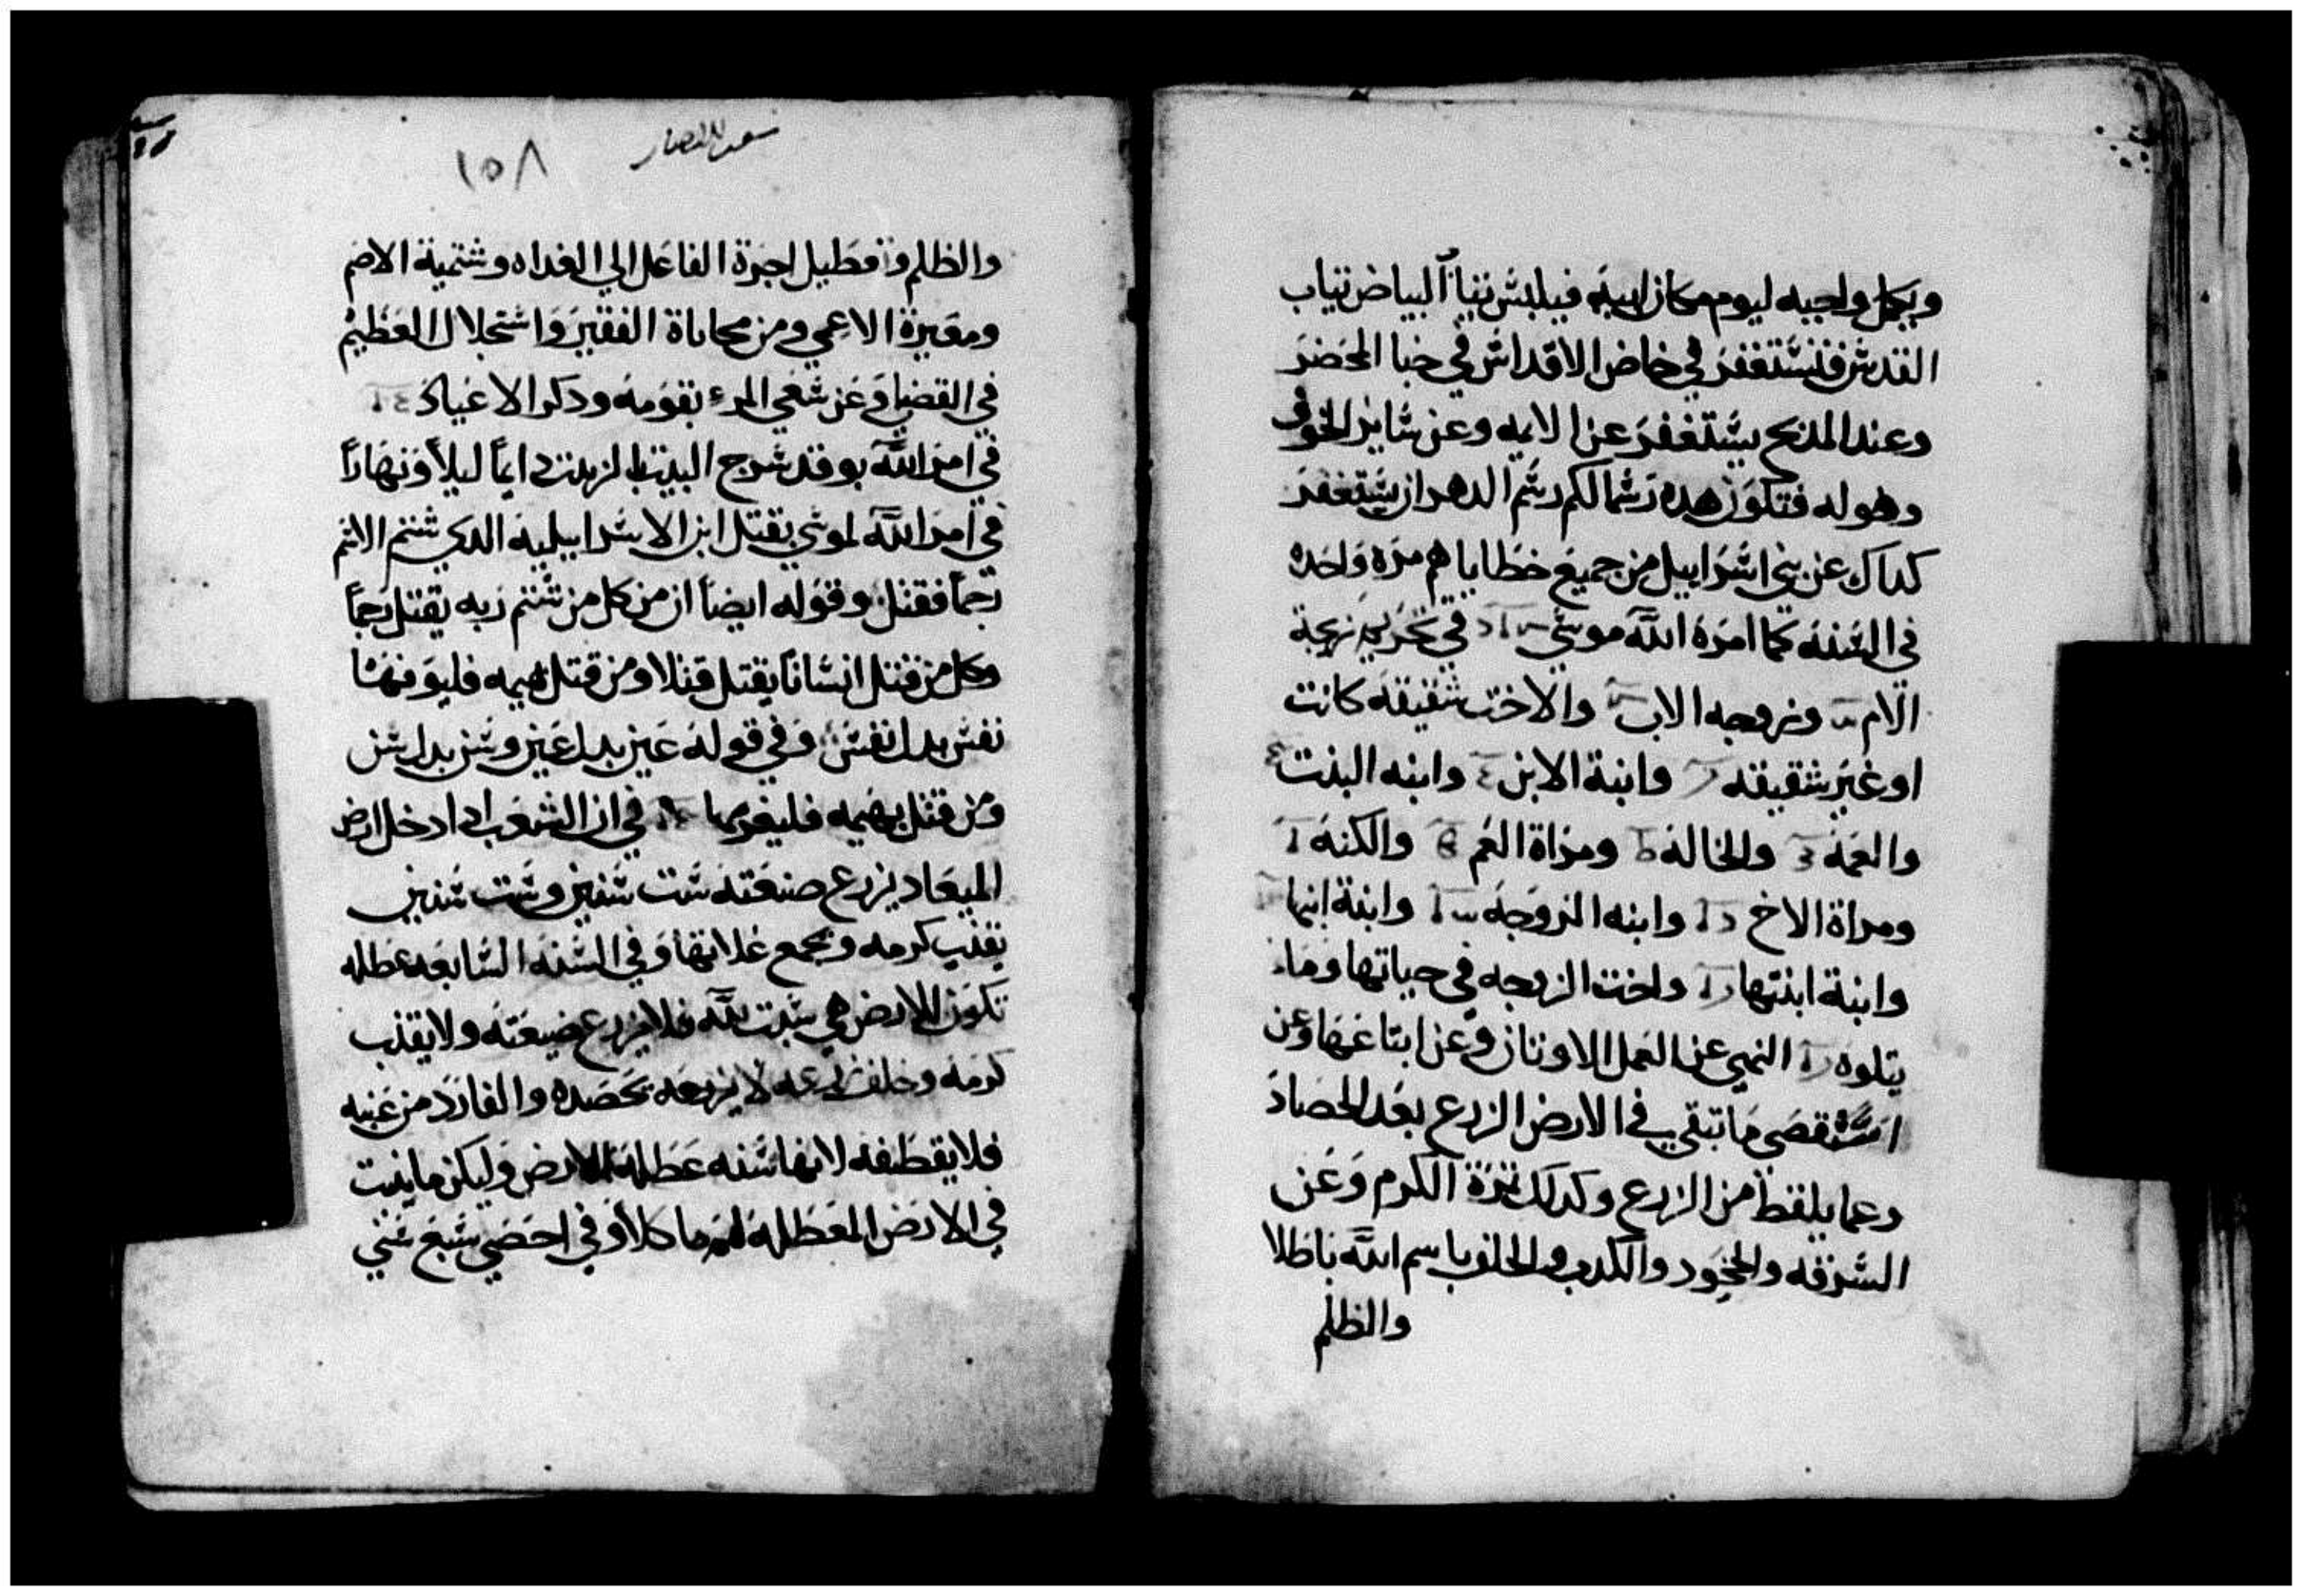 ويكمل واجبه ليوم مكان ابيه فيلبش تياب البياض تياب
القدش فيشتغفر في خاض الاقداش في خبا المحضر
وعند المدبح يشتغفر عن الايمه وعن شاير الخوف
وهو له فتكون هده رشما لكم رشم الدهر ان يشتغفر
كداك عن بني اشراييل من جميع خطاياهم مره واحده
في الشنه كما امره الله موشي في تحريم زيجة
الام وزوجه الاب والاخت شقيقه كانت
او غير شقيقه وابنة الابن وابنه البنت
والعمه والخاله ومراة العم والكنه
ومراة الاخ وابنه الزوجه وابنة ابنها
وابنة ابنتها واخت الزوجه في حياتها وما
يتلوه النهي عن العمل الاوتان وعن ابتاعها وعن
اشتقصي ما تبقي في الارض الزرع بعد الحصاد
وعما يلقط من الزرع وكدلك ثمرة الكرم وعن
الشرقه والجحود والكدب والحلف باسم الله باطلا
والظلم
١٥٨
والظلم وتعطيل اجرة الفاعل الي الغداه وشتمية الاصم
ومعيرة الاعمي ومن محاباة الفقير واشتجلال العظيم
في القضيا وعن شعي المرء بقومه ودكر الاعياد
في امر الله بوقد شرج البيت بالزيت دايما ليلا ونهارا
في امر الله لموشي بقتل ابن الاشراييليه الدي شتم الاشم
رجما فقتل وقوله ايضا ان من كل من شتم ربه يقتل رجما
وكل من قتل انشانا يقتل قتلا ومن قتل بهيمه فليوفها
نفش بدل نفش وفي قوله عين بدل عين وشن بدل شن
ومن قتل بهيمه فليغرمها في ان الشعب ادا دخل ارض
الميعاد يزرع ضيعته شت شنين وشت شنين
يقذب كرمه ويجمع غلاتها وفي الشنه الشابعه عطله
تكون للارض هي شبت لله فلا يزرع ضيعته ولا يقذب
كرمه وخلف زرعه لا يزرعه تحصده والفارد من عنبه
فلا يقطفه لانها شنه عطله للارض وليكن ما ينبت
في الارض المعطله لهم ماكلا وفي احصي شبع شني